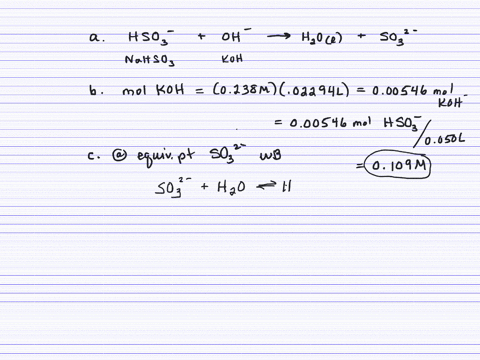 a. HSO₃⁻ + OH⁻ → H₂O(l) + SO₃²⁻
NaHSO₃ KOH
b. mol KOH = (0.238M)(.02294L) = 0.00546 mol KOH⁻
= 0.00546 mol HSO₃⁻ / 0.050L
= 0.109M
c. @ equiv.pt SO₃²⁻ WB
SO₃²⁻ + H₂O ⇌ H